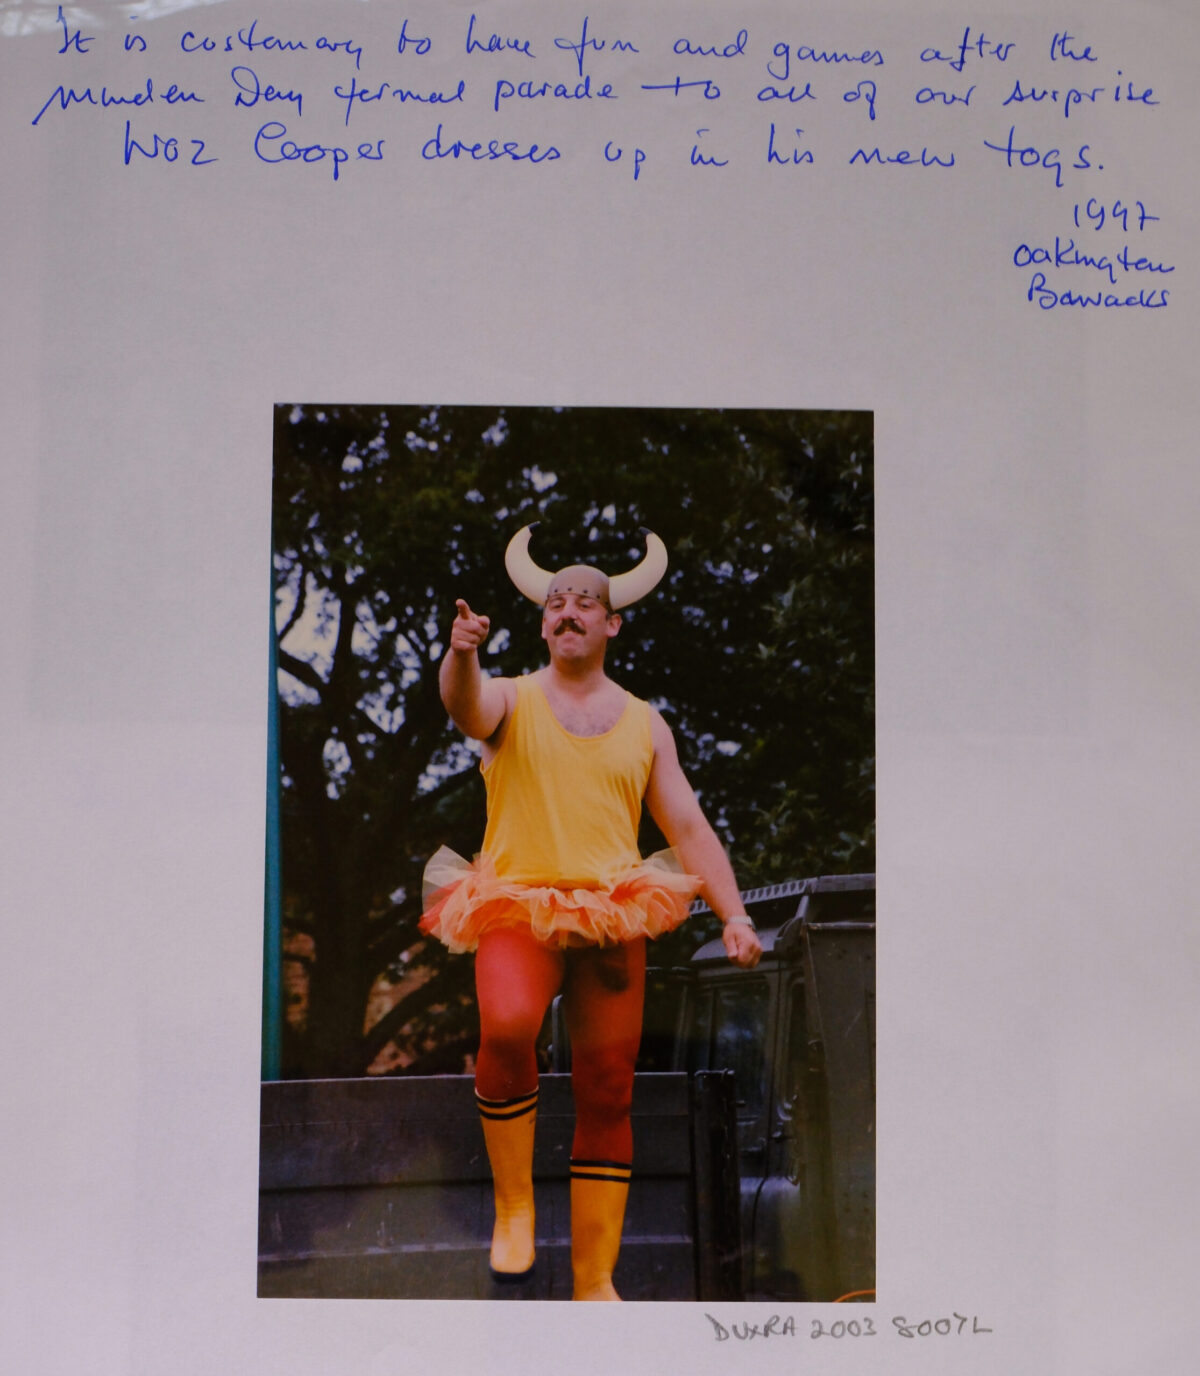 It is customary to have fun and games after the
Minden Day formal parade to all of our surprise
Woz Cooper dresses up in his new togs.
1997
Oakington
Barracks
DUXRA 2003 8007L